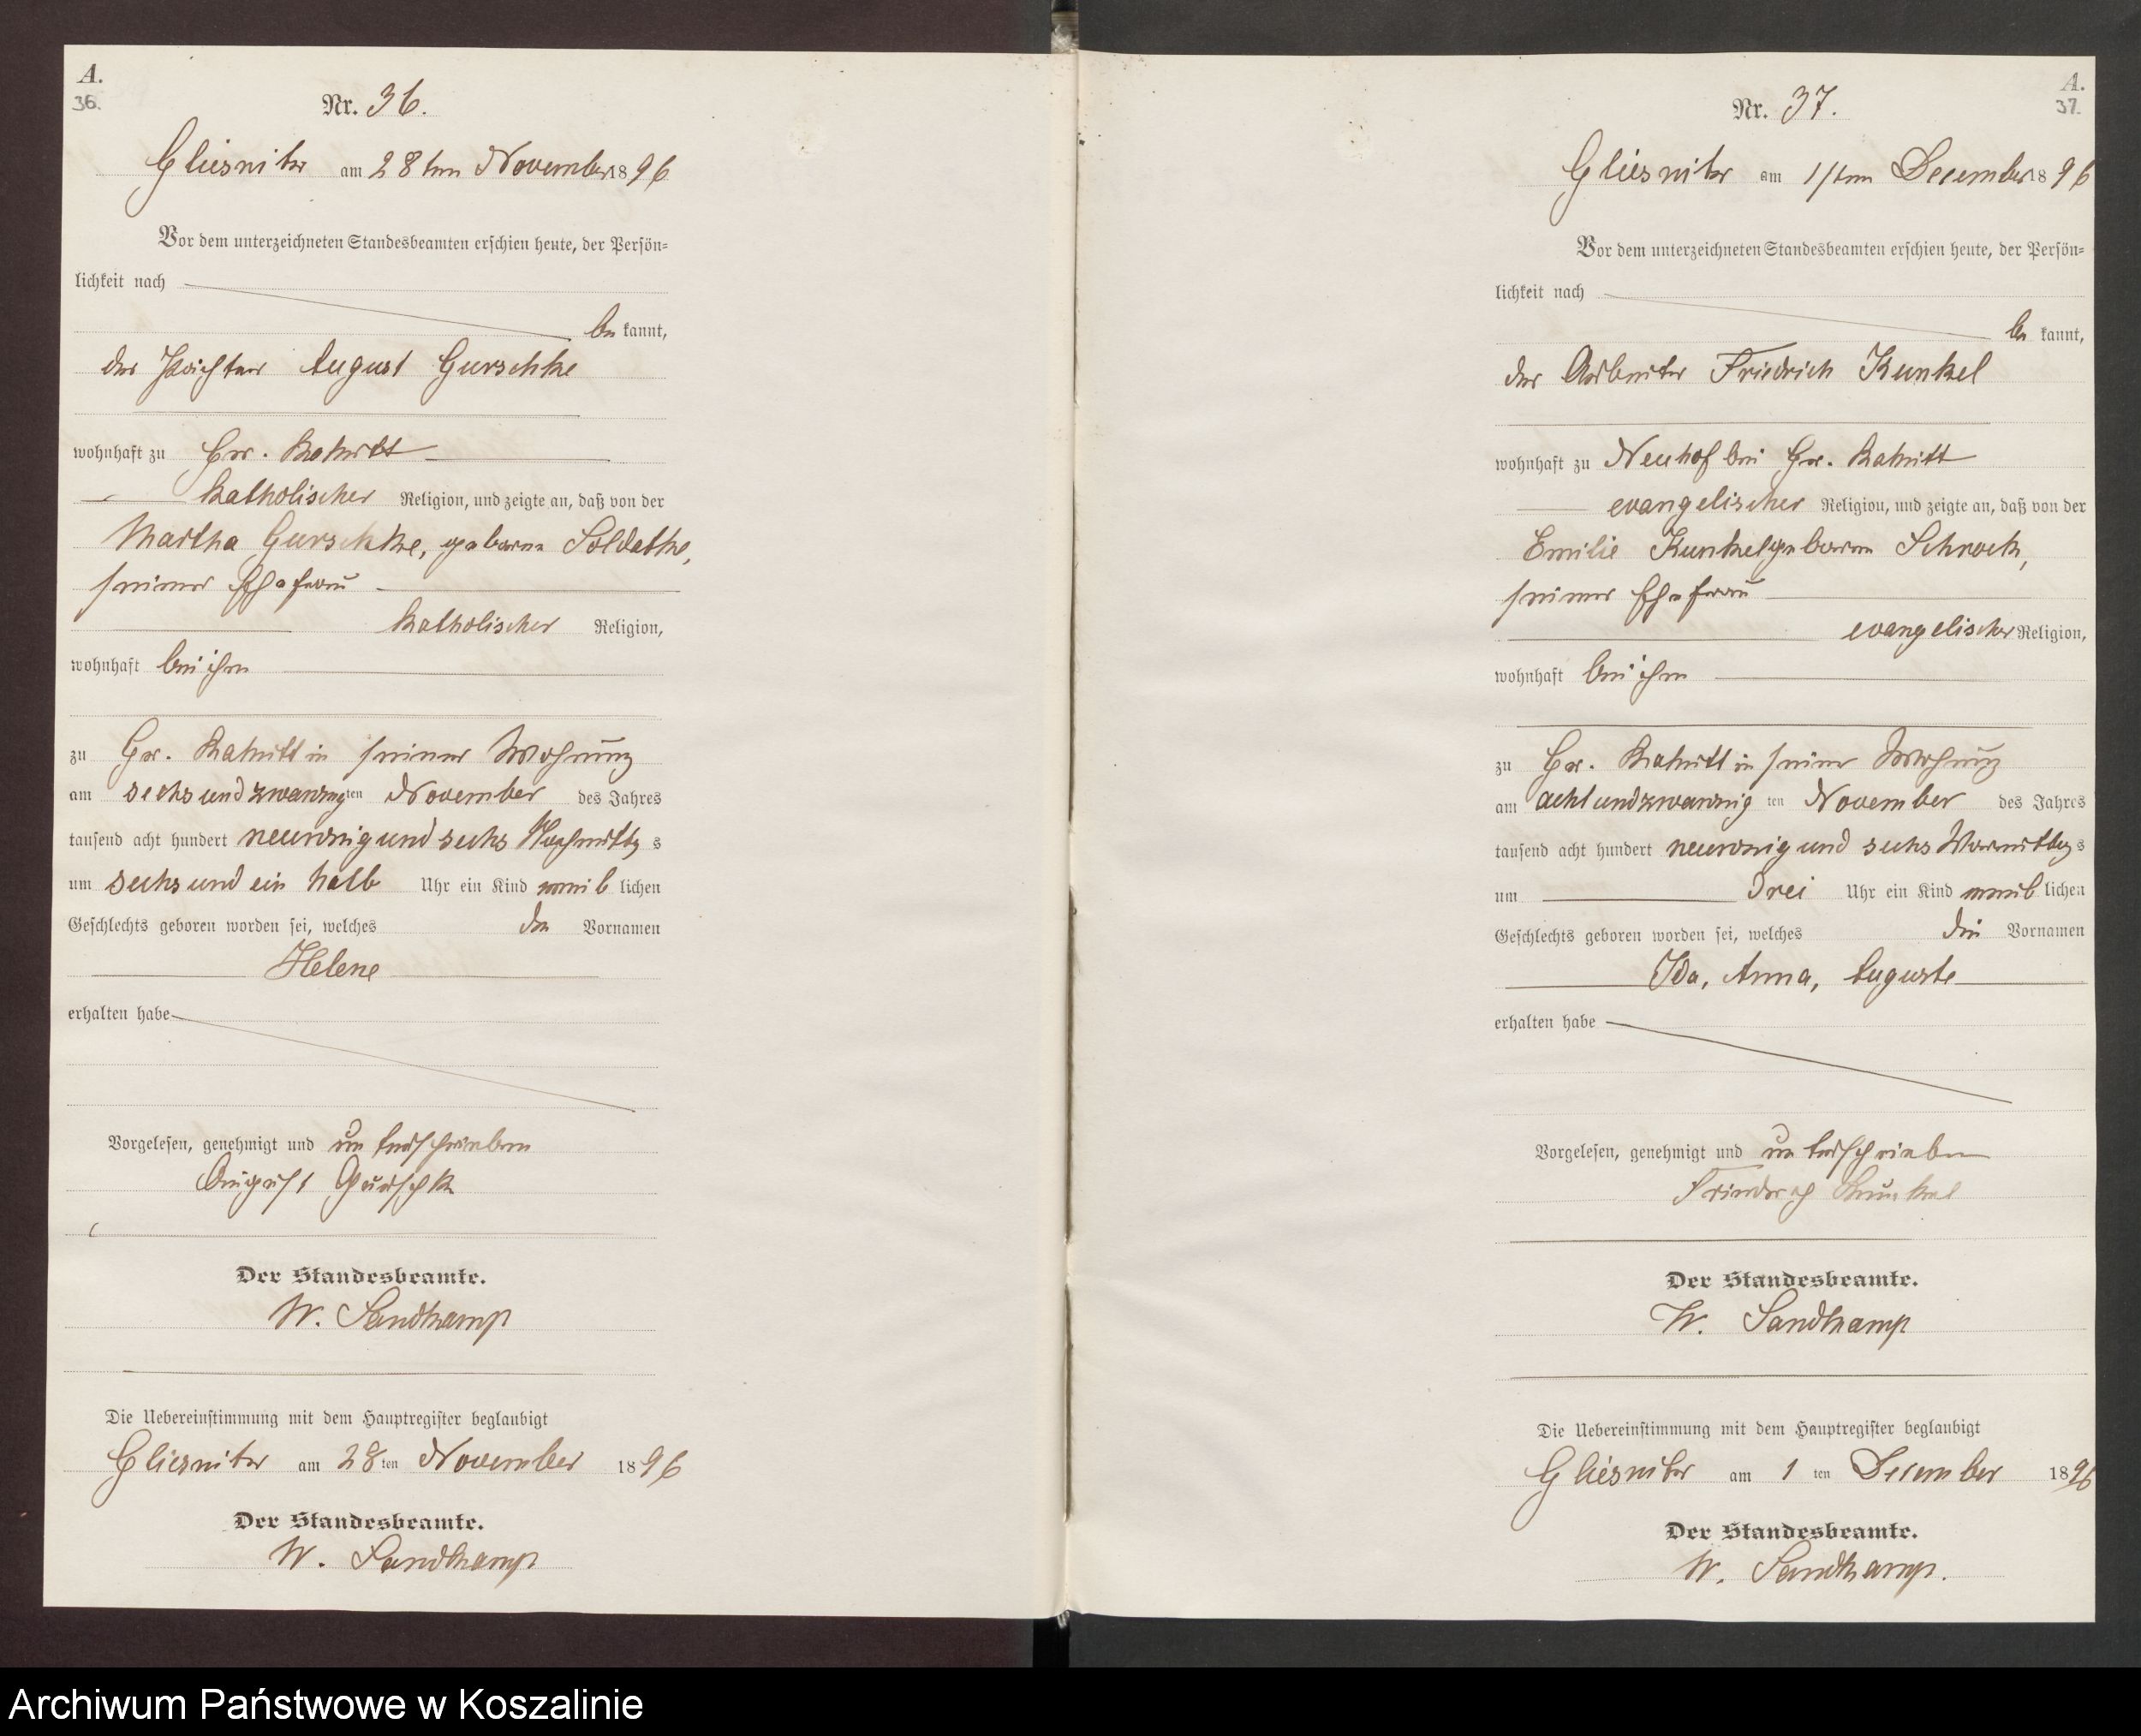 A.
36.
Nr. 36.
Gliesnitz am 28ten November 1896
Vor dem unterzeichneten Standesbeamten erschien heute, der Persön=
lichkeit nach
be kannt,
der Pächter August Gurschke
wohnhaft zu Gr. Rakitt
katholischer Religion, und zeigte an, daß von der
Martha Gurschke, geborne Soldatke,
seiner Ehefrau
katholischer Religion,
wohnhaft bei ihm
zu Gr. Rakitt in seiner Wohnung
am sechsundzwanzigten November des Jahres
tausend acht hundert neunzig und sechs Nachmittags
um sechs und ein halb Uhr ein Kind weib lichen
Geschlechts geboren worden sei, welches den Vornamen
Helene
erhalten habe
Vorgelesen, genehmigt und unterschrieben
August Gurschke
Der Standesbeamte.
W. Sandkamp
Die Uebereinstimmung mit dem Hauptregister beglaubigt
Gliesnitz am 28ten November 1896
Der Standesbeamte.
W. Sandkamp
A.
37.
Nr. 37.
Gliesnitz am 1ten December 1896
Vor dem unterzeichneten Standesbeamten erschien heute, der Persön=
lichkeit nach
be kannt,
der Arbeiter Friedrich Kunkel
wohnhaft zu Neuhof bei Gr. Rakitt
evangelischer Religion, und zeigte an, daß von der
Emilie Kunkel geborne Schrock,
seiner Ehefrau
evangelischer Religion,
wohnhaft bei ihm
zu Gr. Rakitt in seiner Wohnung
am achtundzwanzig ten November des Jahres
tausend acht hundert neunzig und sechs Vormittags
um drei Uhr ein Kind weib lichen
Geschlechts geboren worden sei, welches die Vornamen
Ida, Anna, Auguste
erhalten habe
Vorgelesen, genehmigt und unterschrieben
Friedrich Kunkel
Der Standesbeamte.
W. Sandkamp
Die Uebereinstimmung mit dem Hauptregister beglaubigt
Gliesnitz am 1 ten December 1896
Der Standesbeamte.
W. Sandkamp.
Archiwum Państwowe w Koszalinie